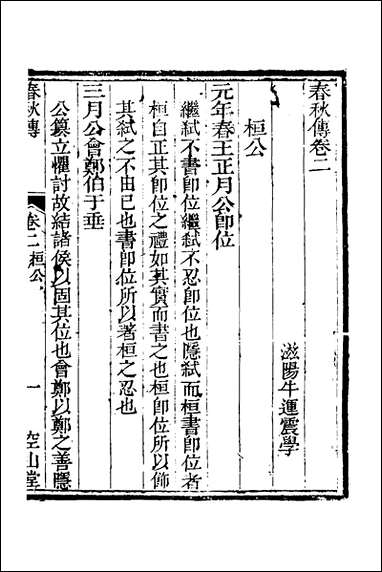 春秋傳卷二
滋陽牛運震學
桓公
元年春王正月公卽位
繼弒不書卽位繼弒不忍卽位也隱弒而桓書卽位者
桓自正其卽位之禮如其實而書之也桓卽位所以飾
其弒之不由己也書卽位所以著桓之忍也
三月公會鄭伯于垂
公簒立懼討故結諸侯以固其位也會鄭以鄭之善隱
春秋傳
卷二桓公
一
空山堂